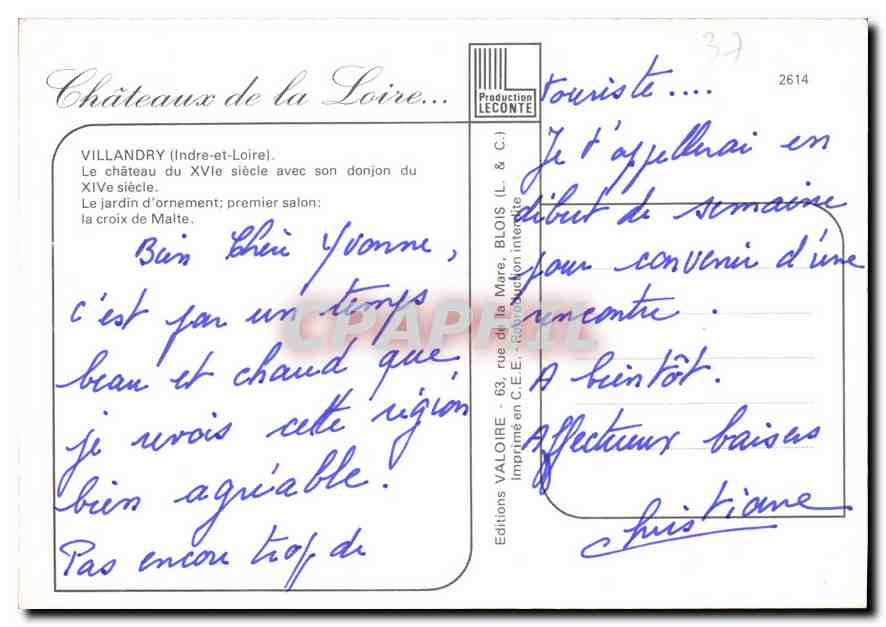 Châteaux de la Loire...
VILLANDRY (Indre-et-Loire).
Le château du XVIe siècle avec son donjon du
XIVe siècle.
Le jardin d'ornement; premier salon:
la croix de Malte.
Bien Chère Yvonne,
c'est par un temps
beau et chaud que
je revois cette région
bien agréable.
Pas encore trop de
Production
LECONTE
Editions VALOIRE - 63, rue de la Mare, BLOIS (L. & C.)
Imprimé en C.E.E. - Reproduction interdite
37
2614
touriste....
Je t'appellerai en
début de semaine
pour convenir d'une
rencontre.
A bientôt.
Affectueux baisers
Christiane
CPAPHIL